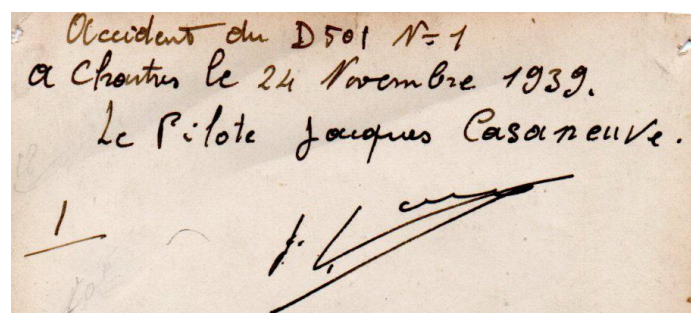 Accident du D501 N=1
A Chartres le 24 Novembre 1939.
Le Pilote Jacques Casaneuve.
1